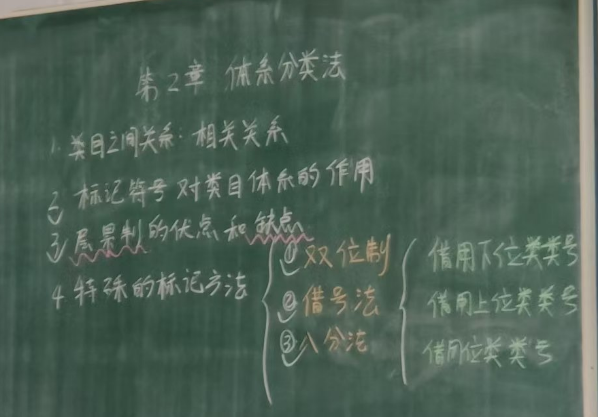 第2章 体系分类法
1. 类目之间关系：相关关系
2 标记符号对类目体系的作用
3 层累制的优点和缺点
4 特殊的标记方法
① 双位制
② 借号法
③ 八分法
借用下位类类号
借用上位类类号
借同位类类号